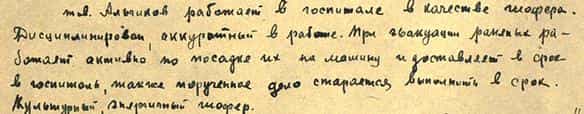 тов. Алыпков работает в госпитале в качестве шофера.
Дисциплинирован, аккуратный в работе. При эвакуации раненых ра-
ботает активно по посадке их на машину и доставляет в срок
в госпиталь, также порученное дело старается выполнить в срок.
Культурный, энергичный шофер.